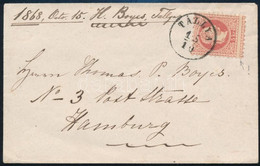 1868, Octr. 15. H. Boyes, July
JALTA
Herrn Thomas P. Boyes.
No 3 Post strasse
Hamburg